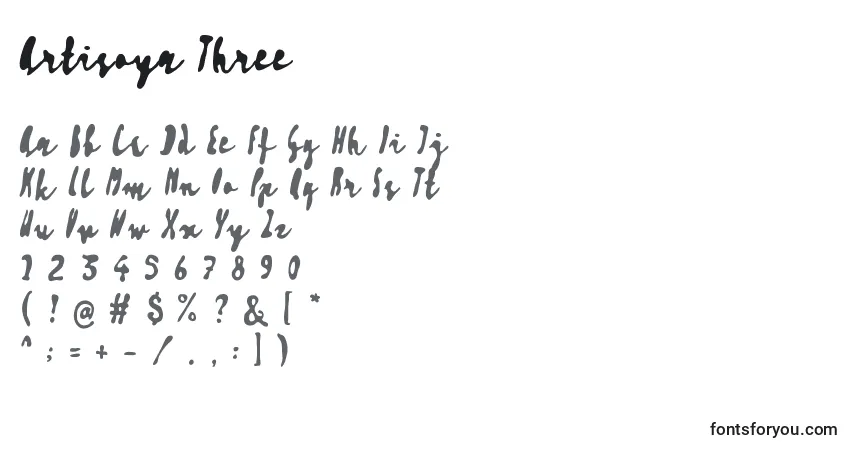 Artisoya Three
Aa Bb Cc Dd Ee Ff Gg Hh Ii Jj
Kk Ll Mm Nn Oo Pp Qq Rr Ss Tt
Uu Vv Ww Xx Yy Zz
1 2 3 4 5 6 7 8 9 0
( ! @ # $ % ? & [ *
^ ; = + - / . , : ] )
fontsforyou.com